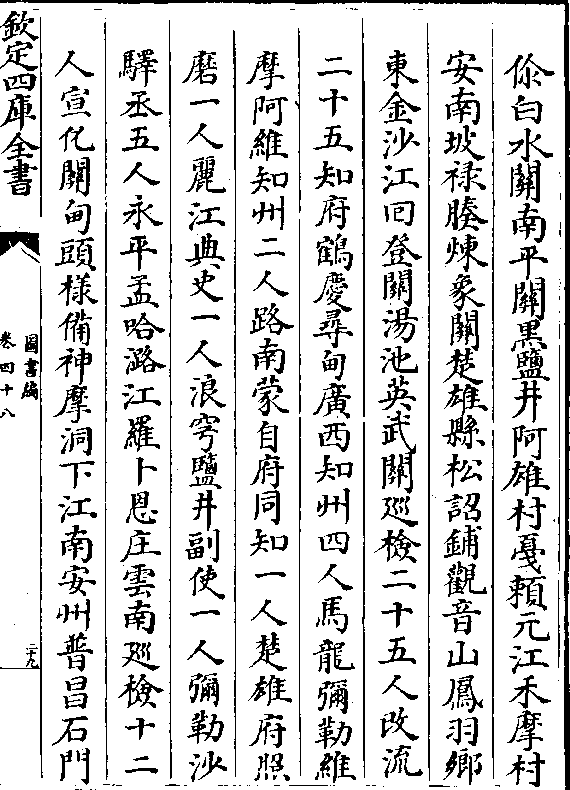 你白水關南平關黒鹽井阿雄村戞賴元江禾摩村
安南坡禄䐁煉象關楚雄縣松詔鋪觀音山鳯羽鄉
東金沙江囘登關湯池英武關廵檢二十五人改流
二十五知府鶴慶尋甸廣西知州四人馬龍彌勒維
摩阿維知州二人路南蒙自府同知一人楚雄府照
磨一人麗江典史一人浪穹鹽井副使一人彌勒沙
驛丞五人永平孟哈潞江羅卜恩庄雲南廵檢十二
人宣化關甸頭様備神摩洞下江南安州普昌石門
欽定四庫全書
圖書編
卷四十八
二十九